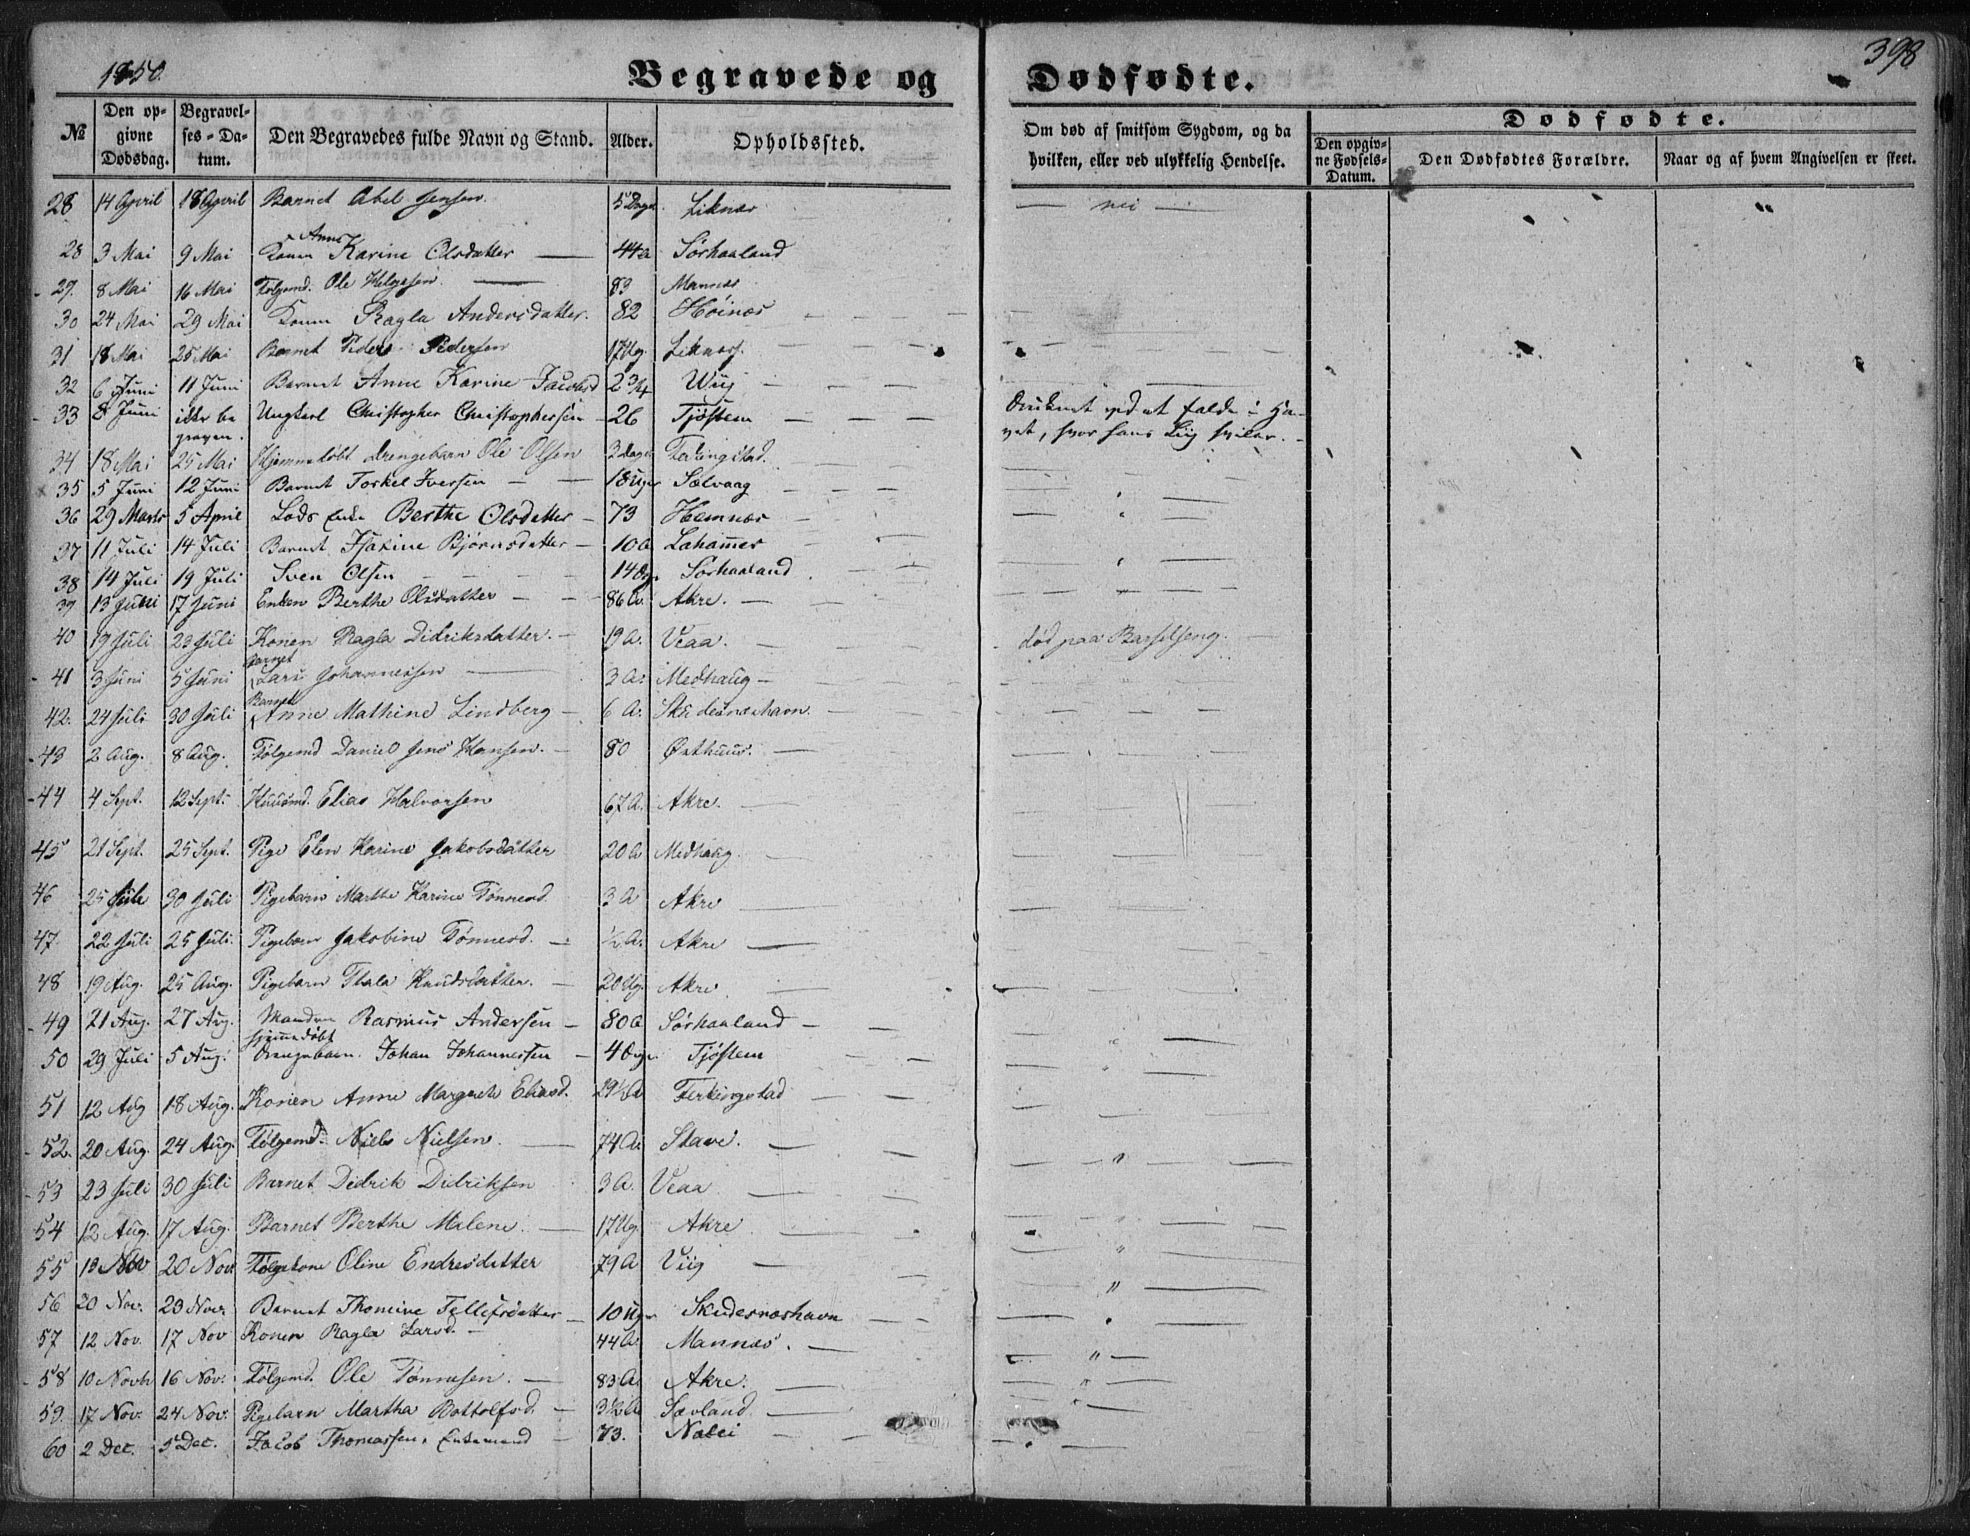 1850.
Begravede og Dødfødte.
398
№
Den opgivne Dødsdag.
Begravelses-Datum.
Den Begravedes fulde Navn og Stand.
Alder.
Opholdssted.
Om død af smitsom Sygdom, og da hvilken, eller ved ulykkelig Hendelse.
Dødfødte.
Den opgivne Fødsels-Datum.
Den Dødfødtes Forældre.
Naar og af hvem Angivelsen er skeet.
28 14 April 18 April Barnet Abel Jensen 5 Dage Liknæs — nei —
28 3 Mai 9 Mai Konen Anne Karine Olsdatter — 44a Sørhaaland
29. 8 Mai 16 Mai Følgemd. Ole Helgesen — 83 Mannes
30 24 Mai 29 Mai Konen Ragla Andersdatter. 82 Høinæs
31 18 Mai 25 Mai Barnet Peder Pedersen 17 Ug. Liknæs
32 6 Juni 11 Juni Barnet Anne Karine Jacobsd 2 3/4 Wiig
33 8 Juni ikke begraven. Ungkarl Christopher Christophersen 26 Tjøstem Druknet ved at falde i Havet, hvor hans Liig hviler.
34 18 Mai 25 Mai Hjemmedøbt Drengebarn Ole Olsen 3 dage Ferkingstad.
35 5 Juni 12 Juni Barnet Torkel Iversen 18 Uger Sælvaag
36 29 Marts 5 April Lods Enke Berthe Olsdatter 73 Hemnæs
37 11 Juli 14 Juli Barnet Bjørnsdatter 10 a Lahammer
38 14 Juli 19 Juli Sven Olsen 14 Dge Sørhaaland
39 13 Juni 17 Juni Enken Berthe Olsdatter 86 a. Akre.
40 19 Juli 23 Juli Konen Ragla Didriksdatter. 19 A. Veaa død paa Barselseng.
41 3 Juni 5 Juni Barnet Lars Johannessen 3 A. Medhaug
42. 24 Juli 30 Juli Barnet Anne Mathine Lindberg 6 A. Skudesnæshavn
43 2 Aug. 8 Aug. Følgemd Daniel Jens Hansen. 80 Østhuus.
44 4 Sept. 12 Sept. Huusmd. Elias Halvorsen 67 A. Akre.
45 21 Sept. 25 Sept. Pige Elen Karine Jakobsdatter 20 A Medhaug.
46 25 Juli 30 Juli Pigebarn Marthe Karine Tønnesd. 3 A Akre
47. 22 Juli 25 Juli. Pigebarn Jakobine Tønnesd. 1/2 A. Akre
48 19 Aug. 25 Aug. Pigebarn Thala Knudsdatter. 20 Ug. Akre
49 21 Aug. 27 Aug. Manden Rasmus Andersen 80 a Sørhaaland
50 29 Juli 5 Aug. hjemmedøbt Drengebarn Johan Johannessen 4 Dge Tjøstem
51 12 Aug 18 Aug. Konen Anne Margrete Eliasd. 29 1/2 A Ferkingstad
52. 20 Aug. 24 Aug. Følgemd. Niels Nielsen. 74 A. Stave.
53 23 Juli 30 Juli Barnet Didrik Didriksen 3 A. Veaa
54 12 Aug. 17 Aug. Barnet Berthe Malene. 17 Ug. Akre
55 13 Nov 20 Nov Følgekone Oline Endresdatter 79 A Viig
56 20 Nov. 23 Nov. Barnet Thomine Tellefsdatter 10 Uger Skudesnæshavn
57 12 Nov. 17 Nov Konen Ragla Larsd. 44 A. Mannæs.
58 10 Novbr 16 Nov. Følgemd. Ole Tønnesen. 83 A. Akre.
59. 17 Nov. 24 Nov. Pigebarn Martha Bottolfsd. 3 1/2 A Sævland.
60 2 Dec. 5 Dec. Jacob Thomassen, Enkemand 73. Nalei